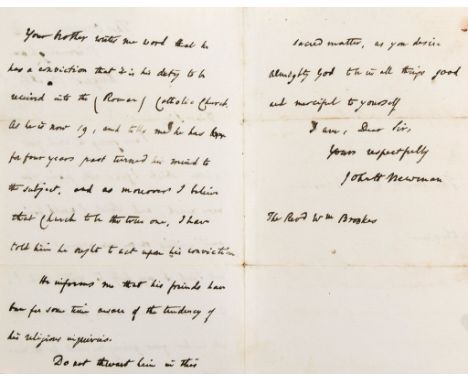 Your brother writes me word that he
has a conviction that it is his duty to be
received into the (Roman) Catholic Church.
As he is now 19, and tells me he has
for four years past turned his mind to
the subject, and as moreover I believe
that Church to be the true one, I have
told him he ought to act upon his conviction
He informs me that his friends have
been for some time aware of the tendency of
his religious inquiries.
Do not thwart him in this
sacred matter, as you desire
Almighty God to be in all things good
and merciful to yourself
I am, Dear Sir,
Yours respectfully
John H Newman
The Revd Wm